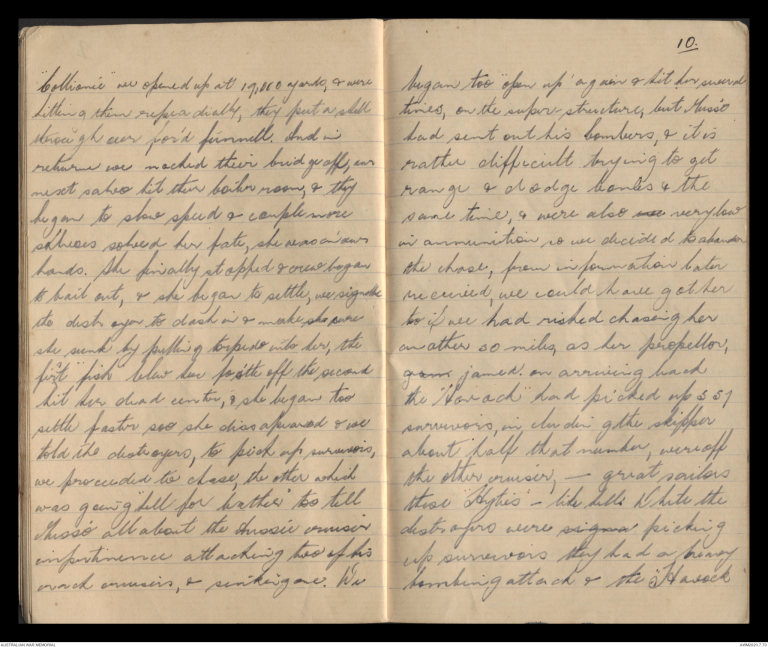 "Collionie" we opened up at 19,000 yards, & were
hitting them repeadially, they put a shell
through our for'd funnell. And in
returne we nocked their bridge off, our
next salvo hit their boiler room, & they
began to slow speed & couple more
salveos solved her fate, she was in our
hands. She finially stopped & crew began
to bail out, & she began to settle, we signalled
the distroyer to dash in & make sure
she sunk by putting torpedo into her, the
first "fish" blew her for'd off the second
hit her dead center, & she began too
settle faster soo she dissapeared & we
told the destroyers, to pick up survivors,
we proceeded to chase, the other which
was going "hell for leather" to tell
Musso all about the Aussie cruiser
impertinence attacking two of his
crack cruisers, & sinking one. We
10.
began too "open up" again & hit her several
times, on the super-structure, but Musso
had sent out his bombers, & it is
rather difficult trying to get
range & dodge bombs & the
same time, & were also very low
in ammunition so we decided to abandon
the chase, from information later
received, we could have got her
too if we had risked chasing her
another 50 miles, as her propellor,
jamed. on arriving back
the "Havach" had picked up 551
survivors, including the skipper
about half that number, were off
the other cruiser, — great sailors
these "Aytis" – like hell. While the
distroyers were signa picking
up survivors they had a heavy
bombing attach & the "Havock
AUSTRALIAN WAR MEMORIAL